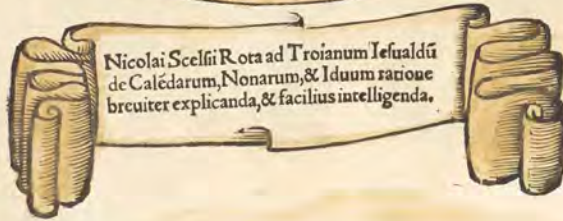 Nicolai Scelsii Rota ad Troianum Iesualdū
de Calēdarum, Nonarum, & Iduum ratione
breuiter explicanda, & facilius intelligenda.